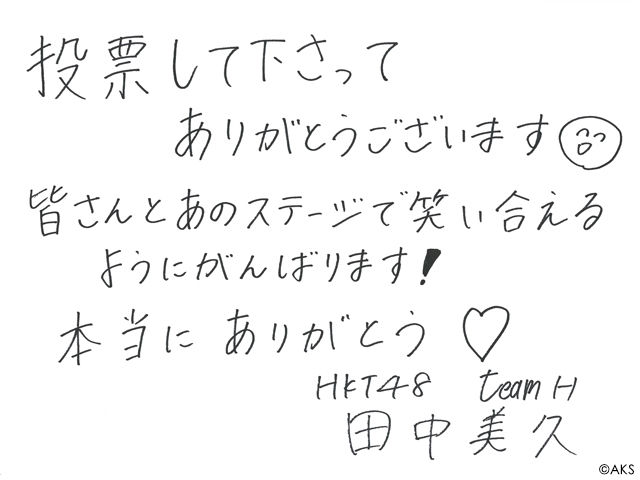 投票して下さって
ありがとうございます
皆さんとあのステージで笑い合える
ようにがんばります!
本当に ありがとう ♡
HKT48 teamH
田中美久
©AKS